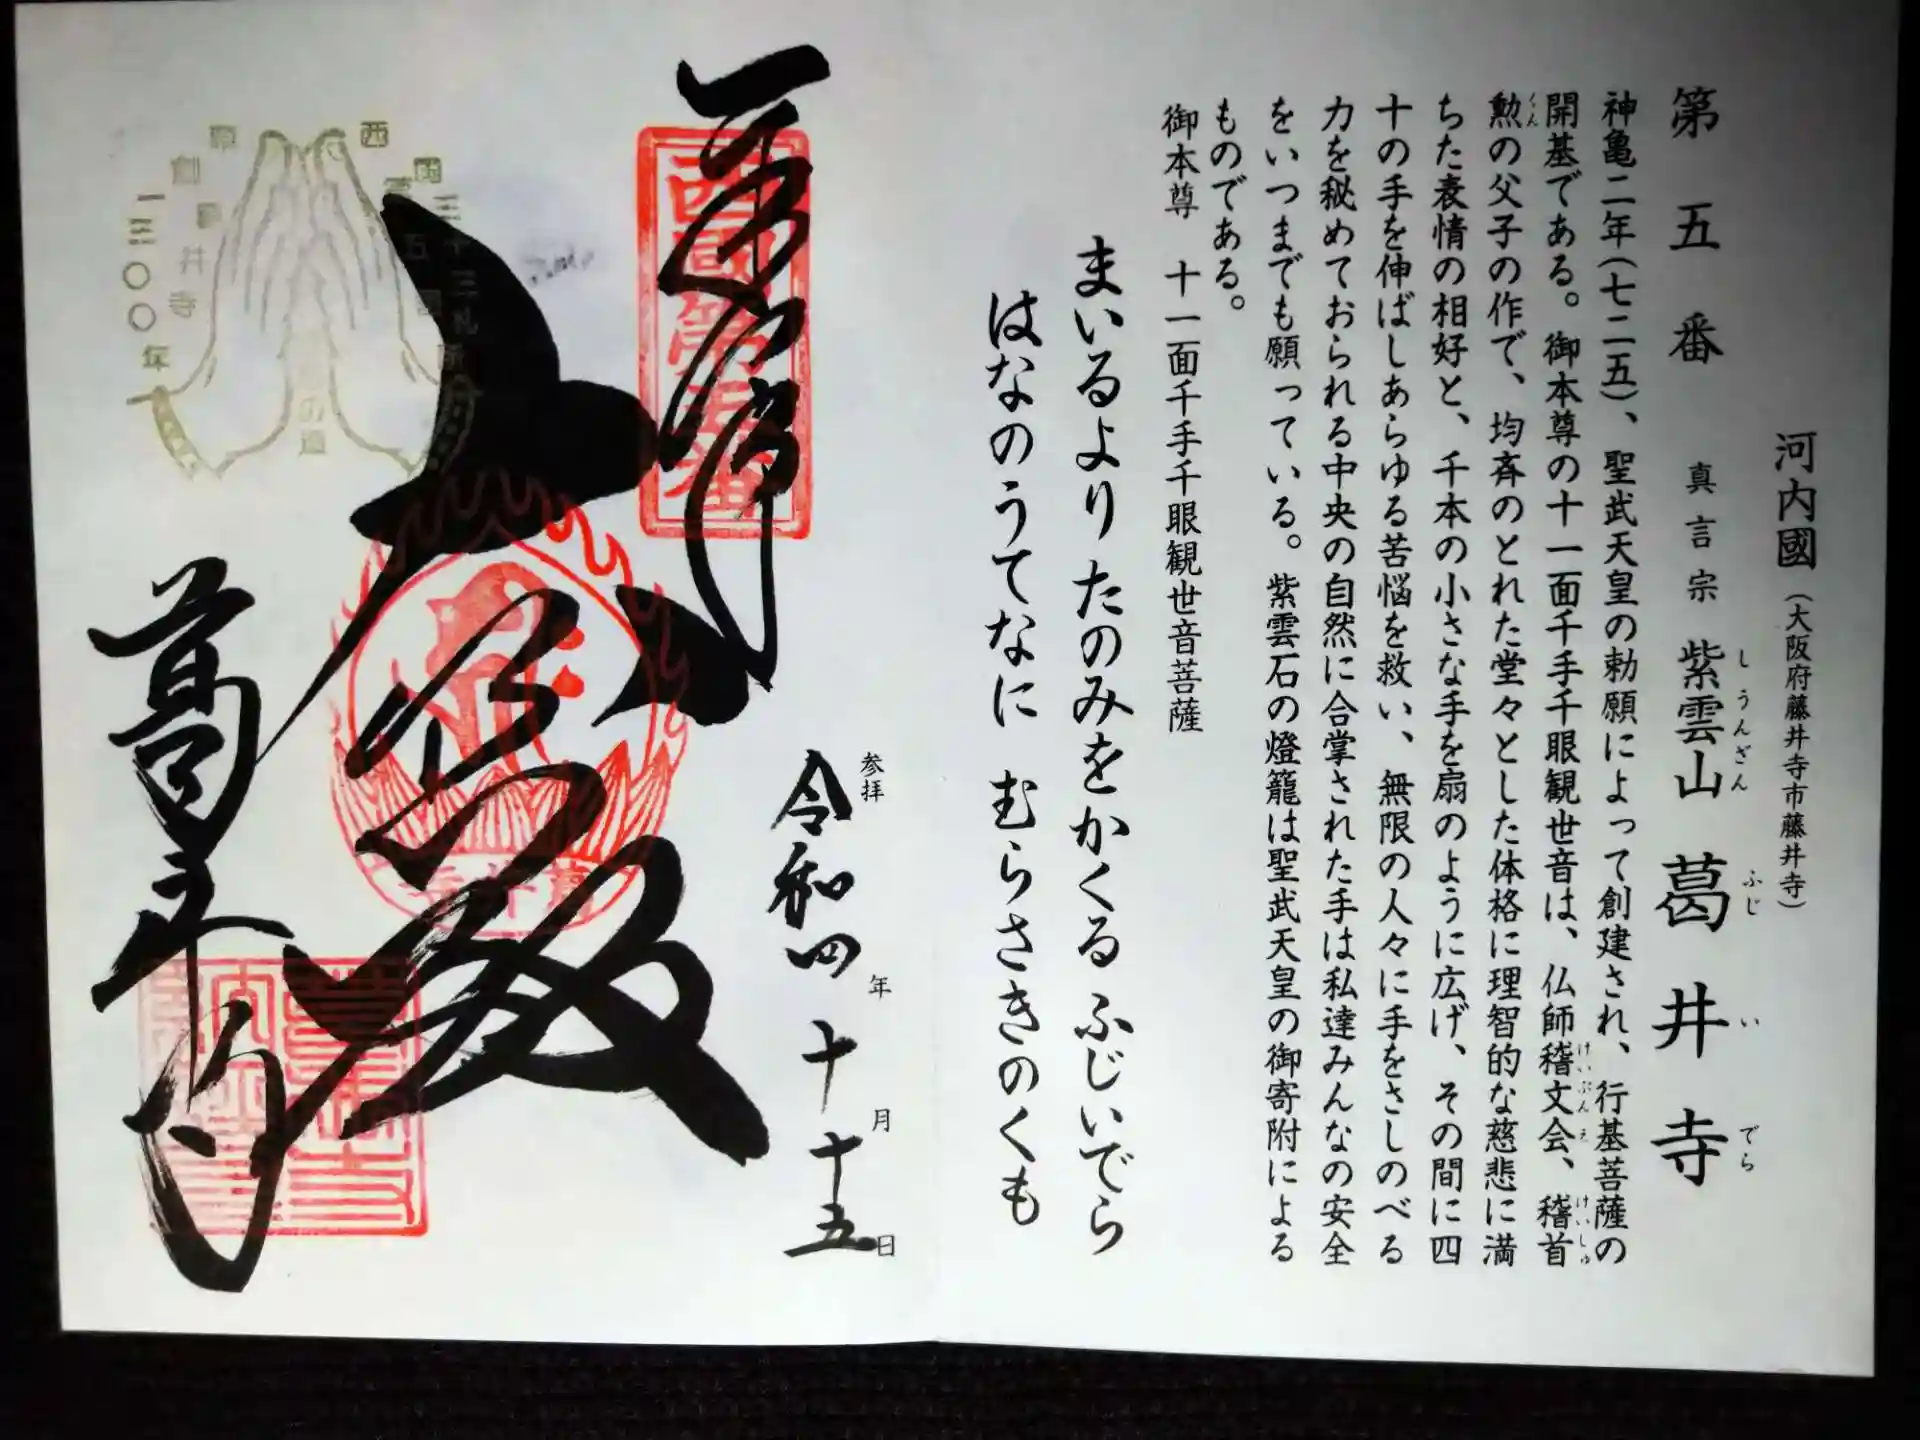 河内國（大阪府藤井寺市藤井寺）
第五番　真言宗　紫雲山　葛井寺
しうんざん　ふじいでら
神亀二年（七二五）、聖武天皇の勅願によって創建され、行基菩薩の
開基である。御本尊の十一面千手千眼観世音は、仏師稽文会、稽首
けいぶんえ　けいしゅ
勲の父子の作で、均斉のとれた堂々とした体格に理智的な慈悲に満
くん
ちた表情の相好と、千本の小さな手を扇のように広げ、その間に四
十の手を伸ばしあらゆる苦悩を救い、無限の人々に手をさしのべる
力を秘めておられる中央の自然に合掌された手は私達みんなの安全
をいつまでも願っている。紫雲石の燈籠は聖武天皇の御寄附による
ものである。
御本尊　十一面千手千眼観世音菩薩
まいるより たのみをかくる ふじいでら
はなのうてなに むらさきのくも
参拝
令和四年十月十五日
奉拝
西國第五番
大悲殿
葛井寺
西国三十三札所
草創一三〇〇年
葛井寺